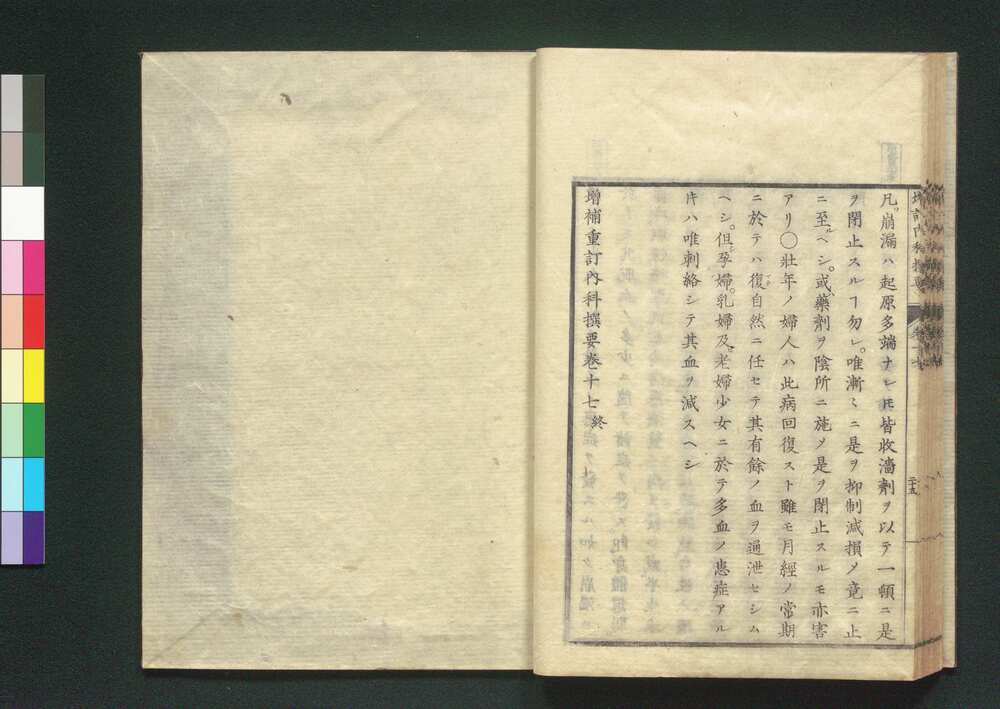 凡崩漏ハ起原多端ナレ𪜈皆收濇劑ヲ以テ一頓ニ是
ヲ閉止スルヿ勿レ唯漸々ニ是ヲ抑制減損メ竟ニ止
ニ至ルヘシ或ハ藥劑ヲ陰所ニ施メ是ヲ閉止スルモ亦害
アリ〇壮年ノ婦人ハ此病回復スト雖モ月經ノ常期
ニ於テハ復タ自然ニ任セテ其有餘ノ血ヲ通泄セシム
ヘシ但シ孕婦乳婦及ヒ老婦少女ニ於テ多血ノ患症アル
𪜈ハ唯刺絡シテ其血ヲ減スヘシ
增補重訂內科撰要卷十七終
二十五